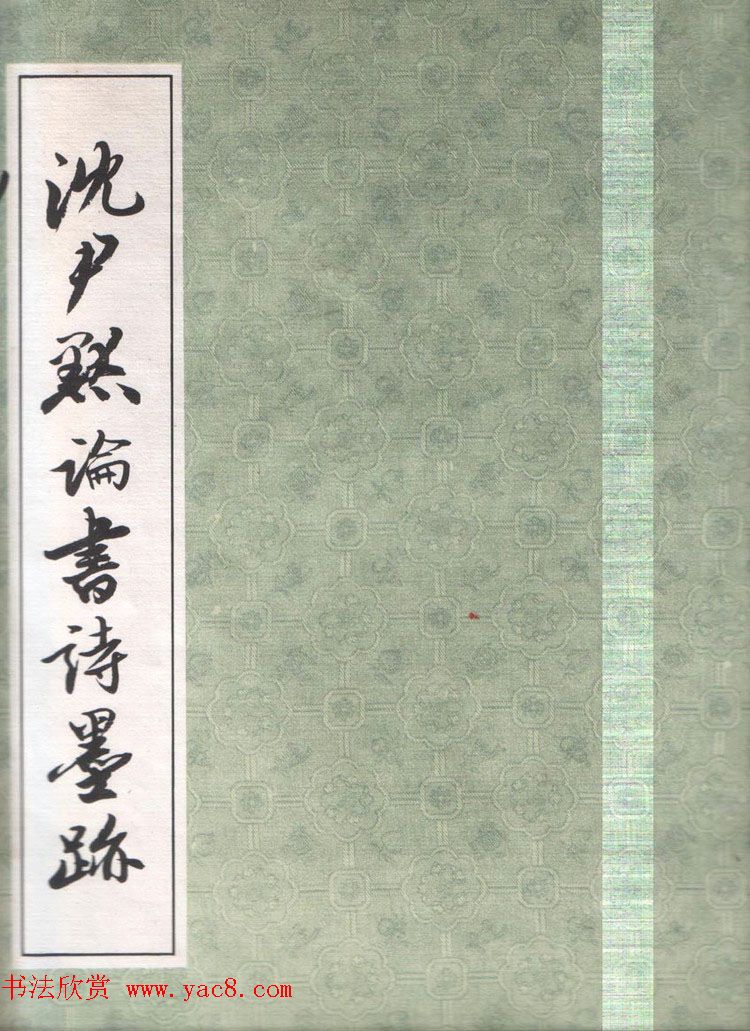 沈尹默論書詩墨跡
书法欣赏 www.yac8.com